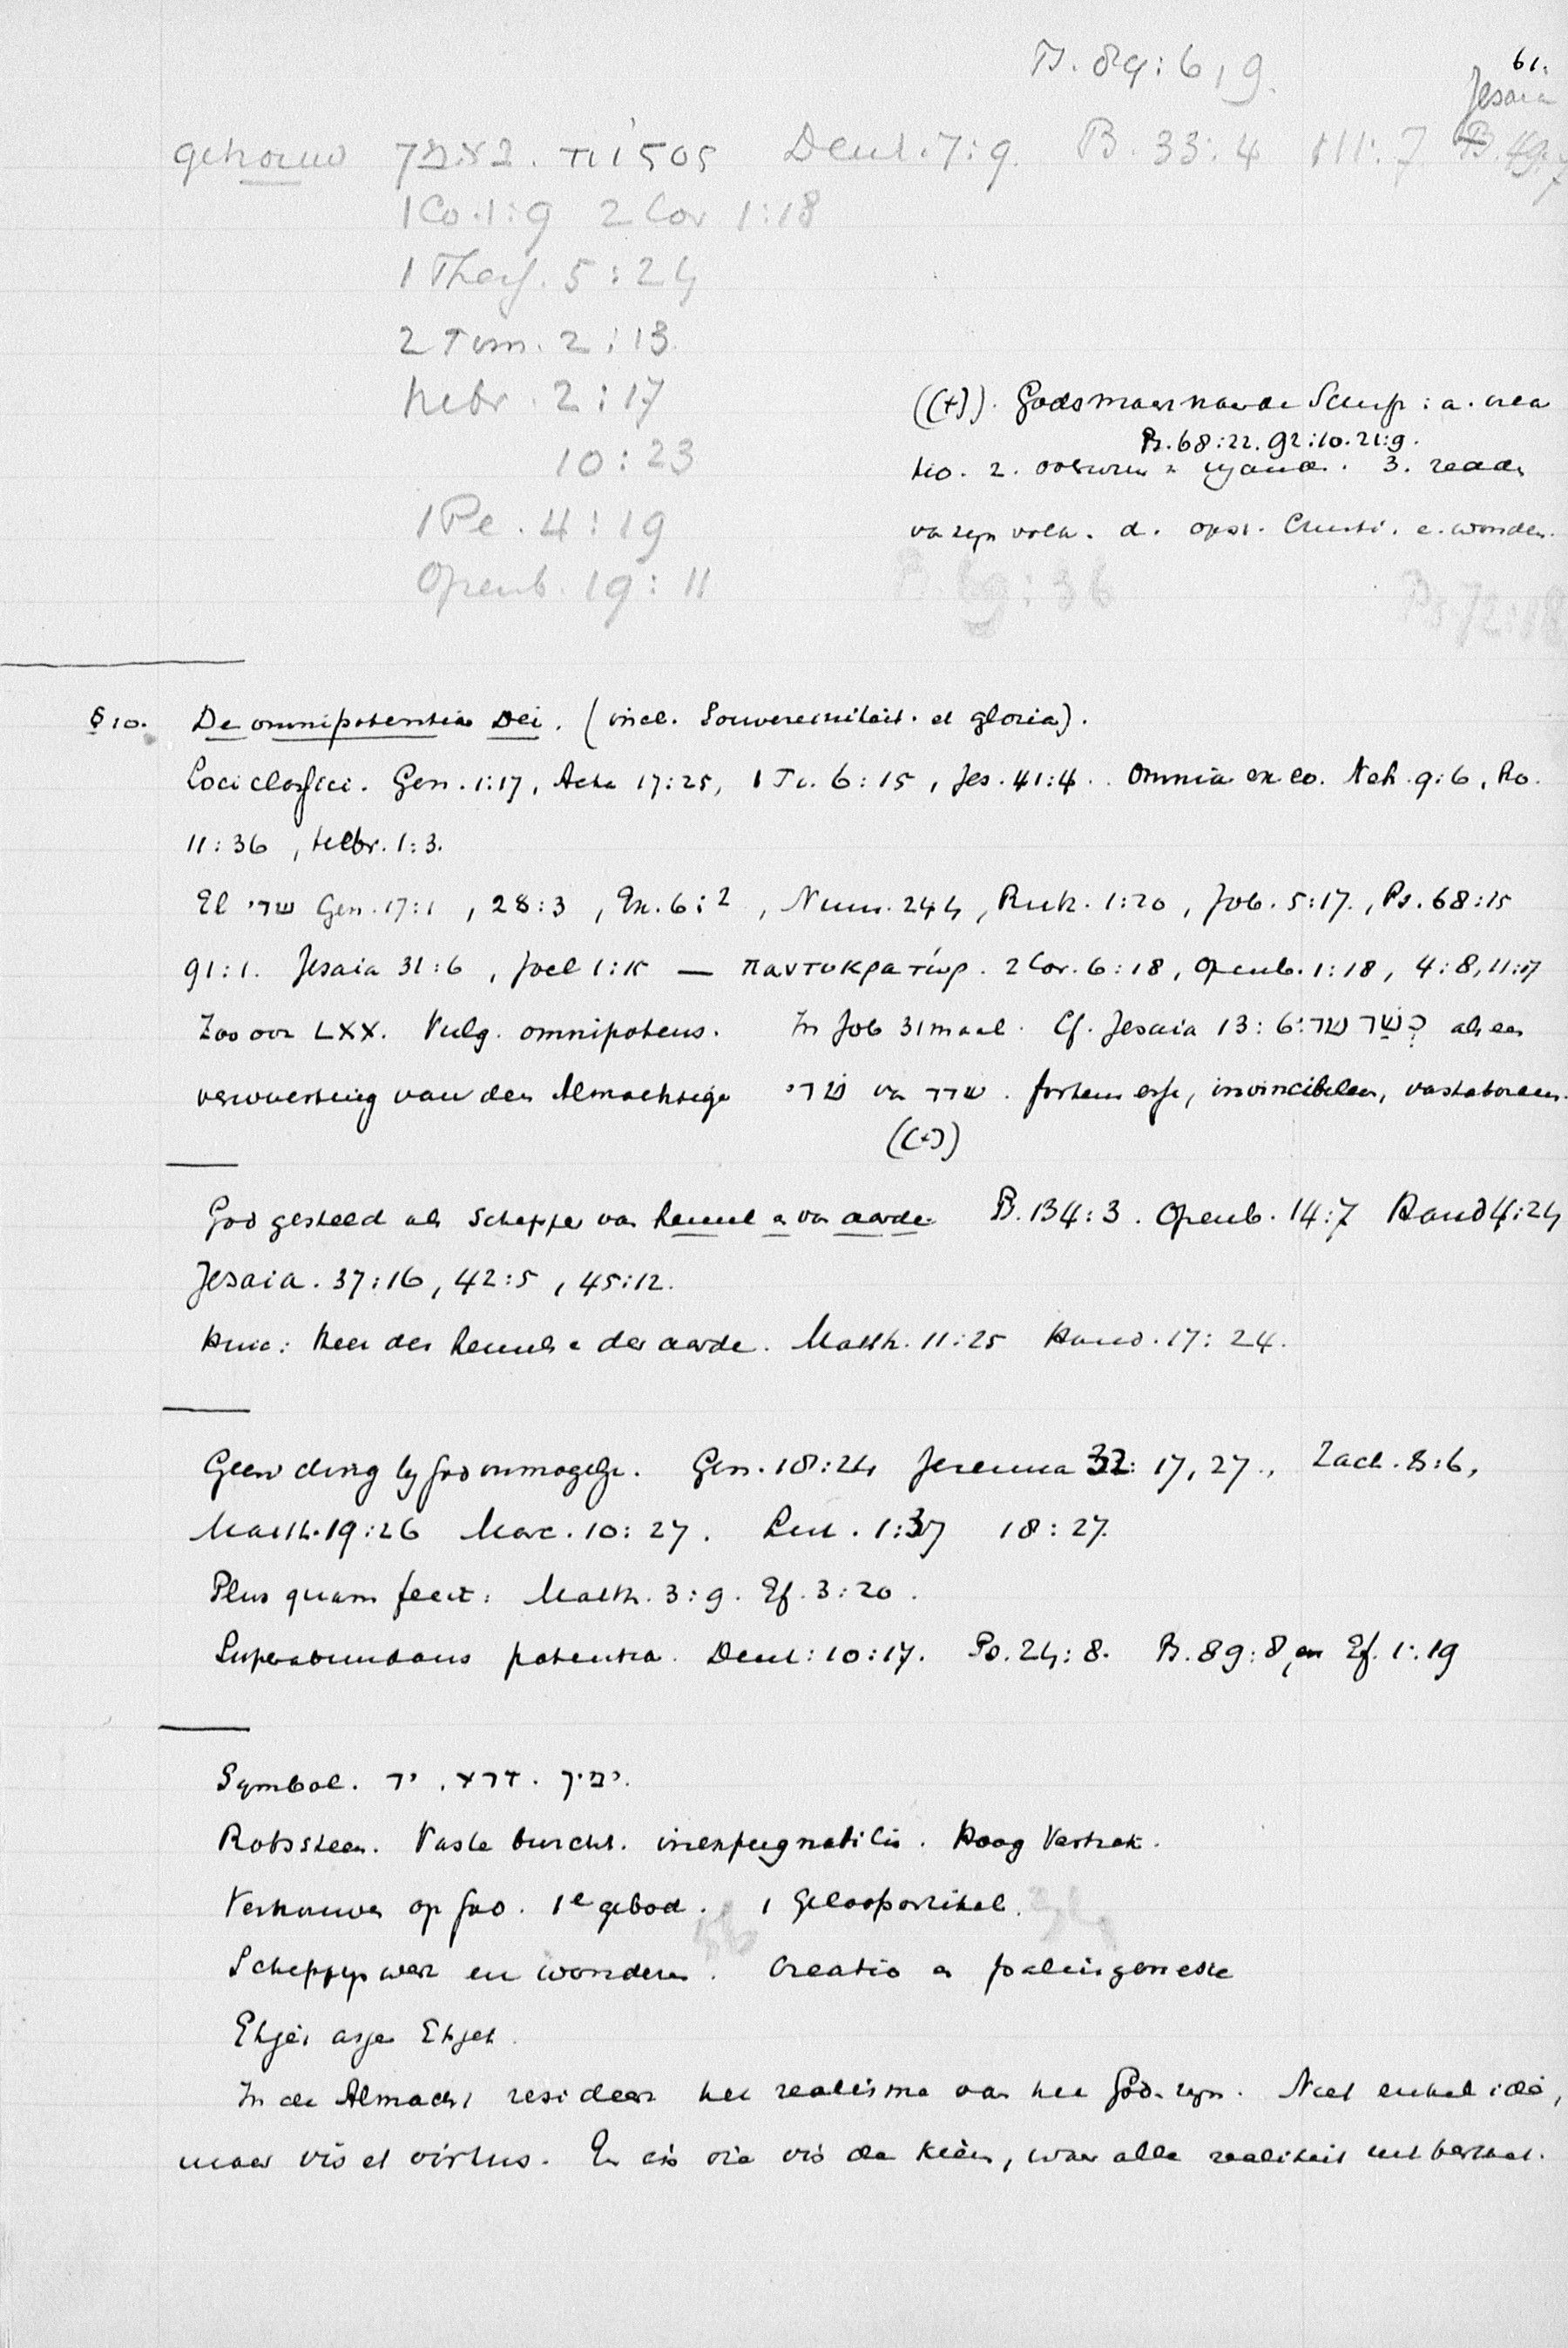 61.
Ps. 89:6, 9.
Jesaia
getrouw נאמן. πιστος Deut. 7:9. Ps. 33:4 111:7 Ps. 49:7
1 Co. 1:9 2 Cor 1:18
1 Thess. 5:24
2 Tim. 2:13.
Hebr. 2:17
10:23
1 Pe. 4:19
Openb. 19:11
((+)). Gods macht naar de Scrip: a. crea
Ps. 68:22. 92:10. 21:9.
tio. 2. vijand. 3. redder
van zijn volk. d. opst. Christi. e. wonder.
Ps. 69:36 Ps. 72:18
§ 10. De omnipotentia Dei. (incl. Souvereiniteit. et gloria).
Loci classici. Gen. 1:17, Acta 17:25, 1 Ti. 6:15, Jes. 41:4.. Omnia ex eo. Neh. 9:6, Ro.
11:36, Hebr. 1:3.
El שדי Gen. 17:1, 28:3, Ex. 6:2, Num. 24 4, Ruth. 1:20, Job. 5:17., Ps. 68:15
91:1. Jesaia 31:6, Joel 1:15 — παντοκρατώρ. 2 Cor. 6:18, Openb. 1:18, 4:8, 11:17
Zoo ook LXX. Vulg. omnipotens. In Job 31 maal. Cf. Jesaia 13:6: כְּשֹׁד שדי als een
verwoesting van den Almachtige שדי van שדד. fortem esse, invincibelem,
((+))
God gesteld als Schepper van hemel en van aarde Ps. 134:3. Openb. 14:7 Hand 4:24
Jesaia. 37:16, 42:5, 45:12.
Hinc: Heer des hemels en der aarde. Matth. 11:25 Hand. 17:24.
Geen ding bij God onmogelijk. Gen. 18:24 Jeremia 32: 17, 27., Zach. 8:6,
Matth. 19:26 Marc. 10:27. Luk. 1:37 18:27.
Plus quam fecit: Matth. 3:9. Ef. 3:20.
Superabundans potentia. Deut: 10:17. Ps. 24:8. Ps. 89:8, en Ef. 1:19
Symbol. יד, זרע. ימין.
Rotssteen. Vaste burcht. inexpugnabilis. Hoog Vertrek.
Vertrouwen op God. 1e gebod. 1 Geloofsartikel.
Scheppingswerk en wonderen. Creatio en palingenesie
Ehjeh asjer Ehjeh.
In de Almacht resideert het realisme van het God-zijn. Niet enkel idée,
maar vis et virtus. En die vis de kiem, waar alle realiteit uit bestaat.